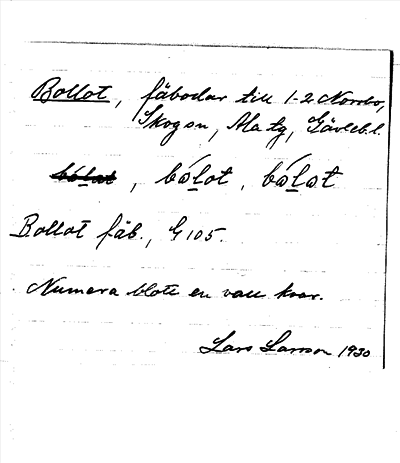 Bollot, fäbodar till 1-2 Norrbo,
Skogsn, Ala tg, Gävleb.l.
bo̱lot, bo̱lət
Bollot fäb., G 105.
Numera blott en vall kvar.
Lars Larsson 1930